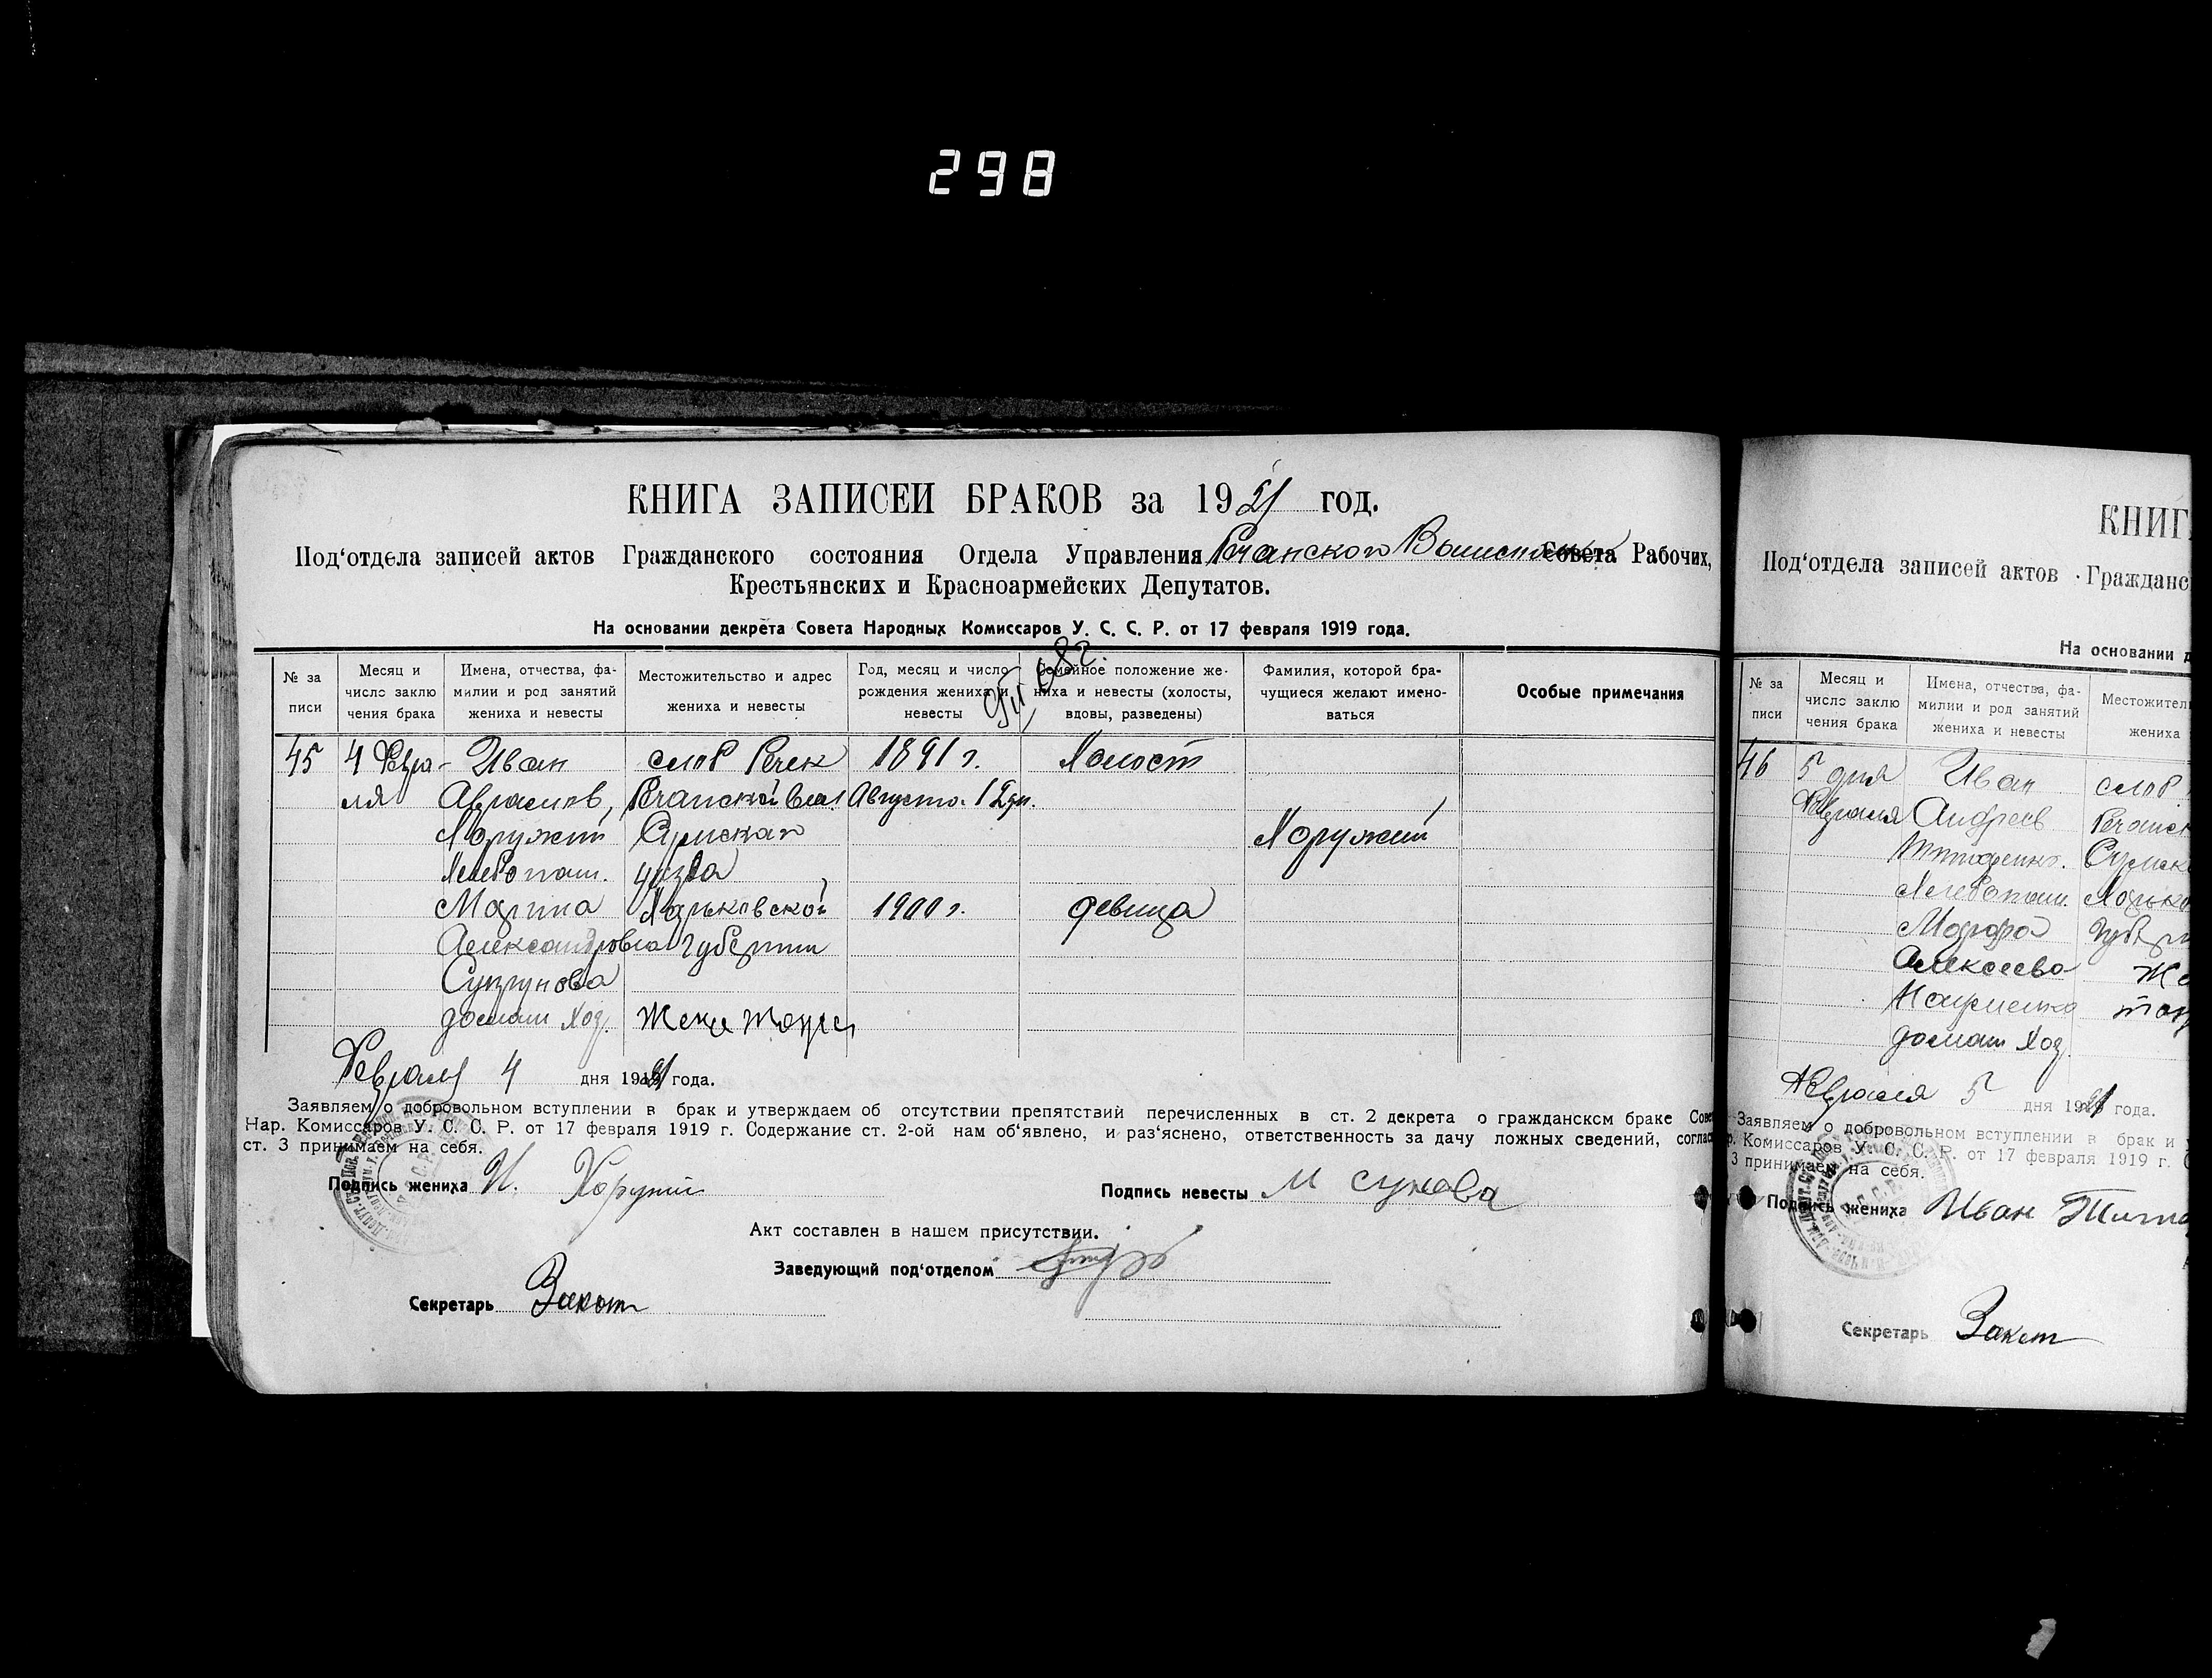 298
КНИГА ЗАПИСЕЙ БРАКОВ за 1921 год.
Под‘отдела записей актов Гражданского состояния Отдела Управления Речанского Совета Рабочих,
Крестьянских и Красноармейских Депутатов.
На основании декрета Совета Народных Комиссаров У. С. С. Р. от 17 февраля 1919 года.
№ за
писи
Месяц и
число заклю
чения брака
Имена, отчества, фа-
милии и род занятий
жениха и невесты
Местожительство и адрес
жениха и невесты
Год, месяц и число
рождения жениха и
невесты
Семейное положение же-
ниха и невесты (холосты,
вдовы, разведены)
Фамилия, которой бра-
чущиеся желают имено-
ваться
Особые примечания
45
4 Февра-
ля
Иван
Абрамов,
Хоружий
Хлебопаш.
Марина
Александровна
домаш хоз.
слоб Речек
Речанской вол
Сумского
уезда
Харьковской
губернии
1891 г.
Августа 12 дн.
1900 г.
Холост
девица
Хоружий
Февраля 4 дня 1921 года.
Заявляем о добровольном вступлении в брак и утверждаем об отсутствии препятствий перечисленных в ст. 2 декрета о гражданском браке Сове
Нар. Комиссаров У. С. С. Р. от 17 февраля 1919 г. Содержание ст. 2-ой нам об‘явлено, и раз‘яснено, ответственность за дачу ложных сведений, соглас
ст. 3 принимаем на себя.
Подпись жениха И. Хоружий
Подпись невесты М
Акт составлен в нашем присутствии.
Заведующий под‘отделом
Секретарь
КНИГ
Под‘отдела записей актов Гражданс
На основании д
№ за
писи
Месяц и
число заклю
чения брака
Имена, отчества, фа-
милии и род занятий
жениха и невесты
Местожител
жениха
46
5 дня
Февраля
Иван
Андреев
Хлебопаш.
Марфа
Алексеева
домаш хоз.
слоб
Речанск
Сумск
Харько
Февраля 5 дня 1921 года.
Заявляем о добровольном вступлении в брак и у
р. Комиссаров У. С. С. Р. от 17 февраля 1919 г. С
3 принимаем на себя.
Подпись жениха Иван
Секретарь